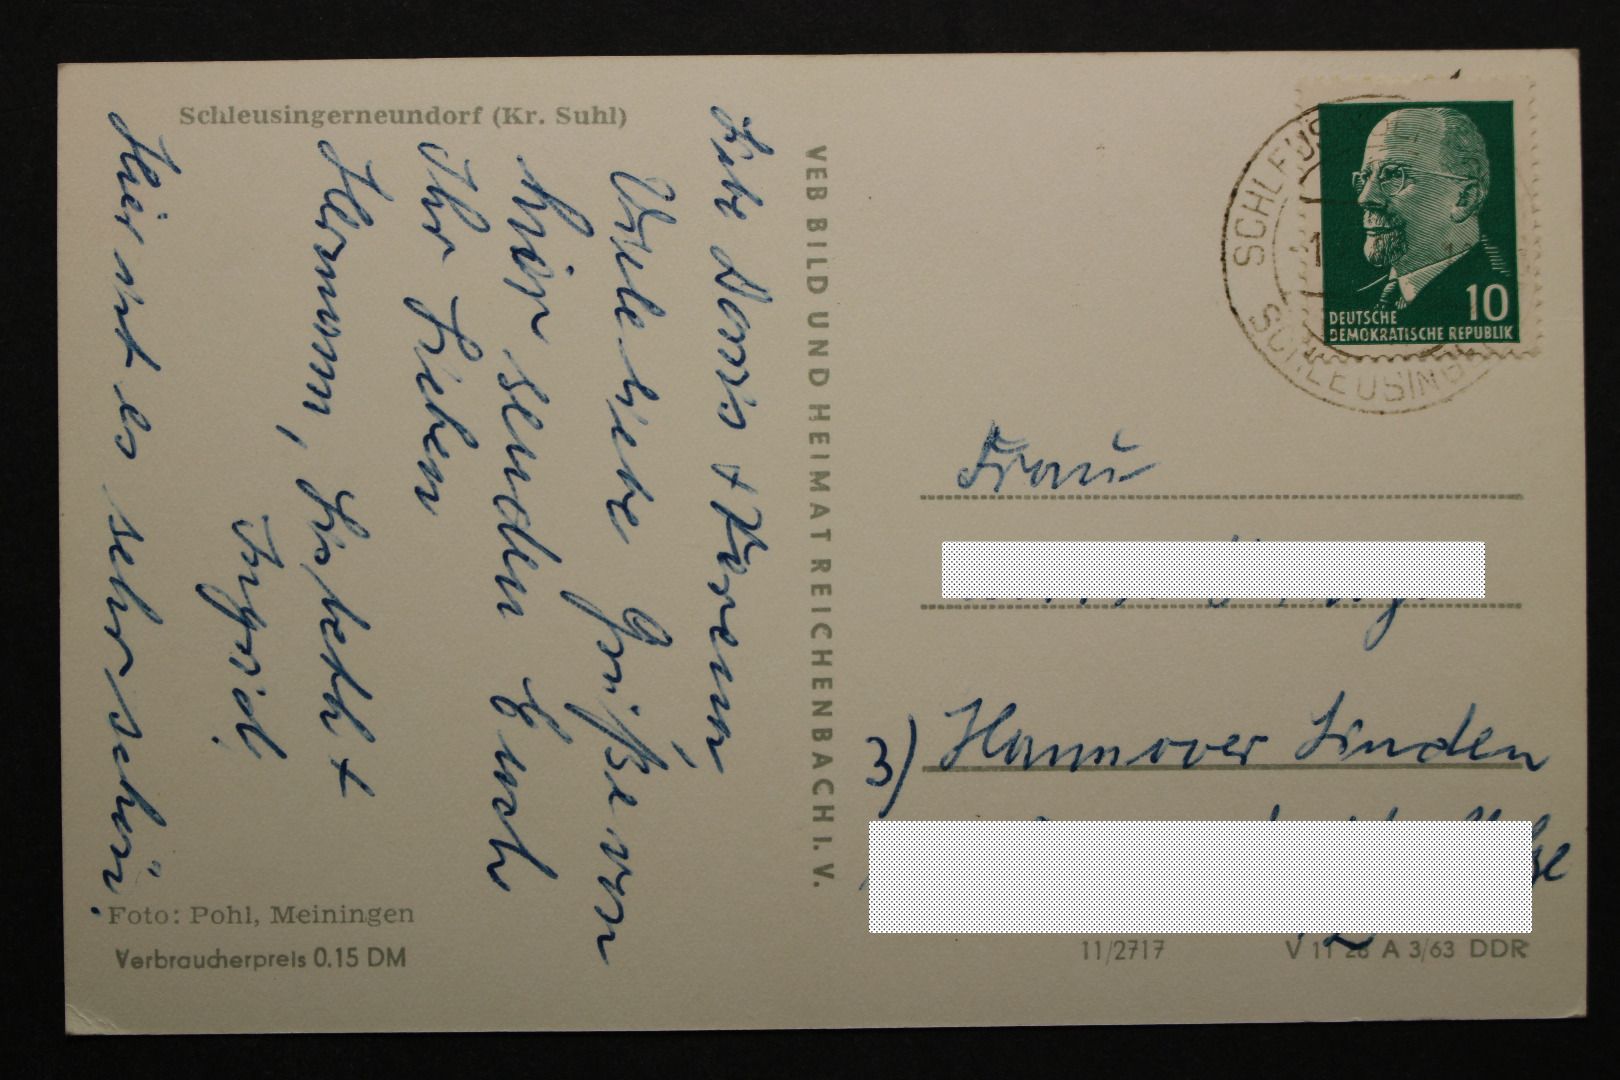 Schleusingerneundorf (Kr. Suhl)
Liebe Doris + Verena,
Viele liebe Grüße von
hier senden Euch
Ihr Lieben
Hermann, Lisbeth +
Ingrid.
Hier ist es sehr schön.
Foto: Pohl, Meiningen
Verbraucherpreis 0.15 DM
VEB BILD UND HEIMAT REICHENBACH I. V.
SCHLEUSINGERNEUNDORF
10
DEUTSCHE
DEMOKRATISCHE REPUBLIK
Frau
3) Hannover Linden
11/2717
V 11 28 A 3/63 DDR